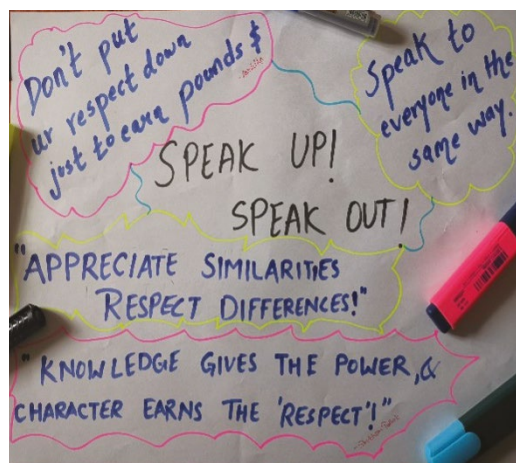 Don't put
ur respect down
just to earn pounds &
Speak to
everyone in the
same way.
SPEAK UP!
SPEAK OUT!
"APPRECIATE SIMILARITIES
RESPECT DIFFERENCES!"
"KNOWLEDGE GIVES THE POWER, &
CHARACTER EARNS THE 'RESPECT'!"